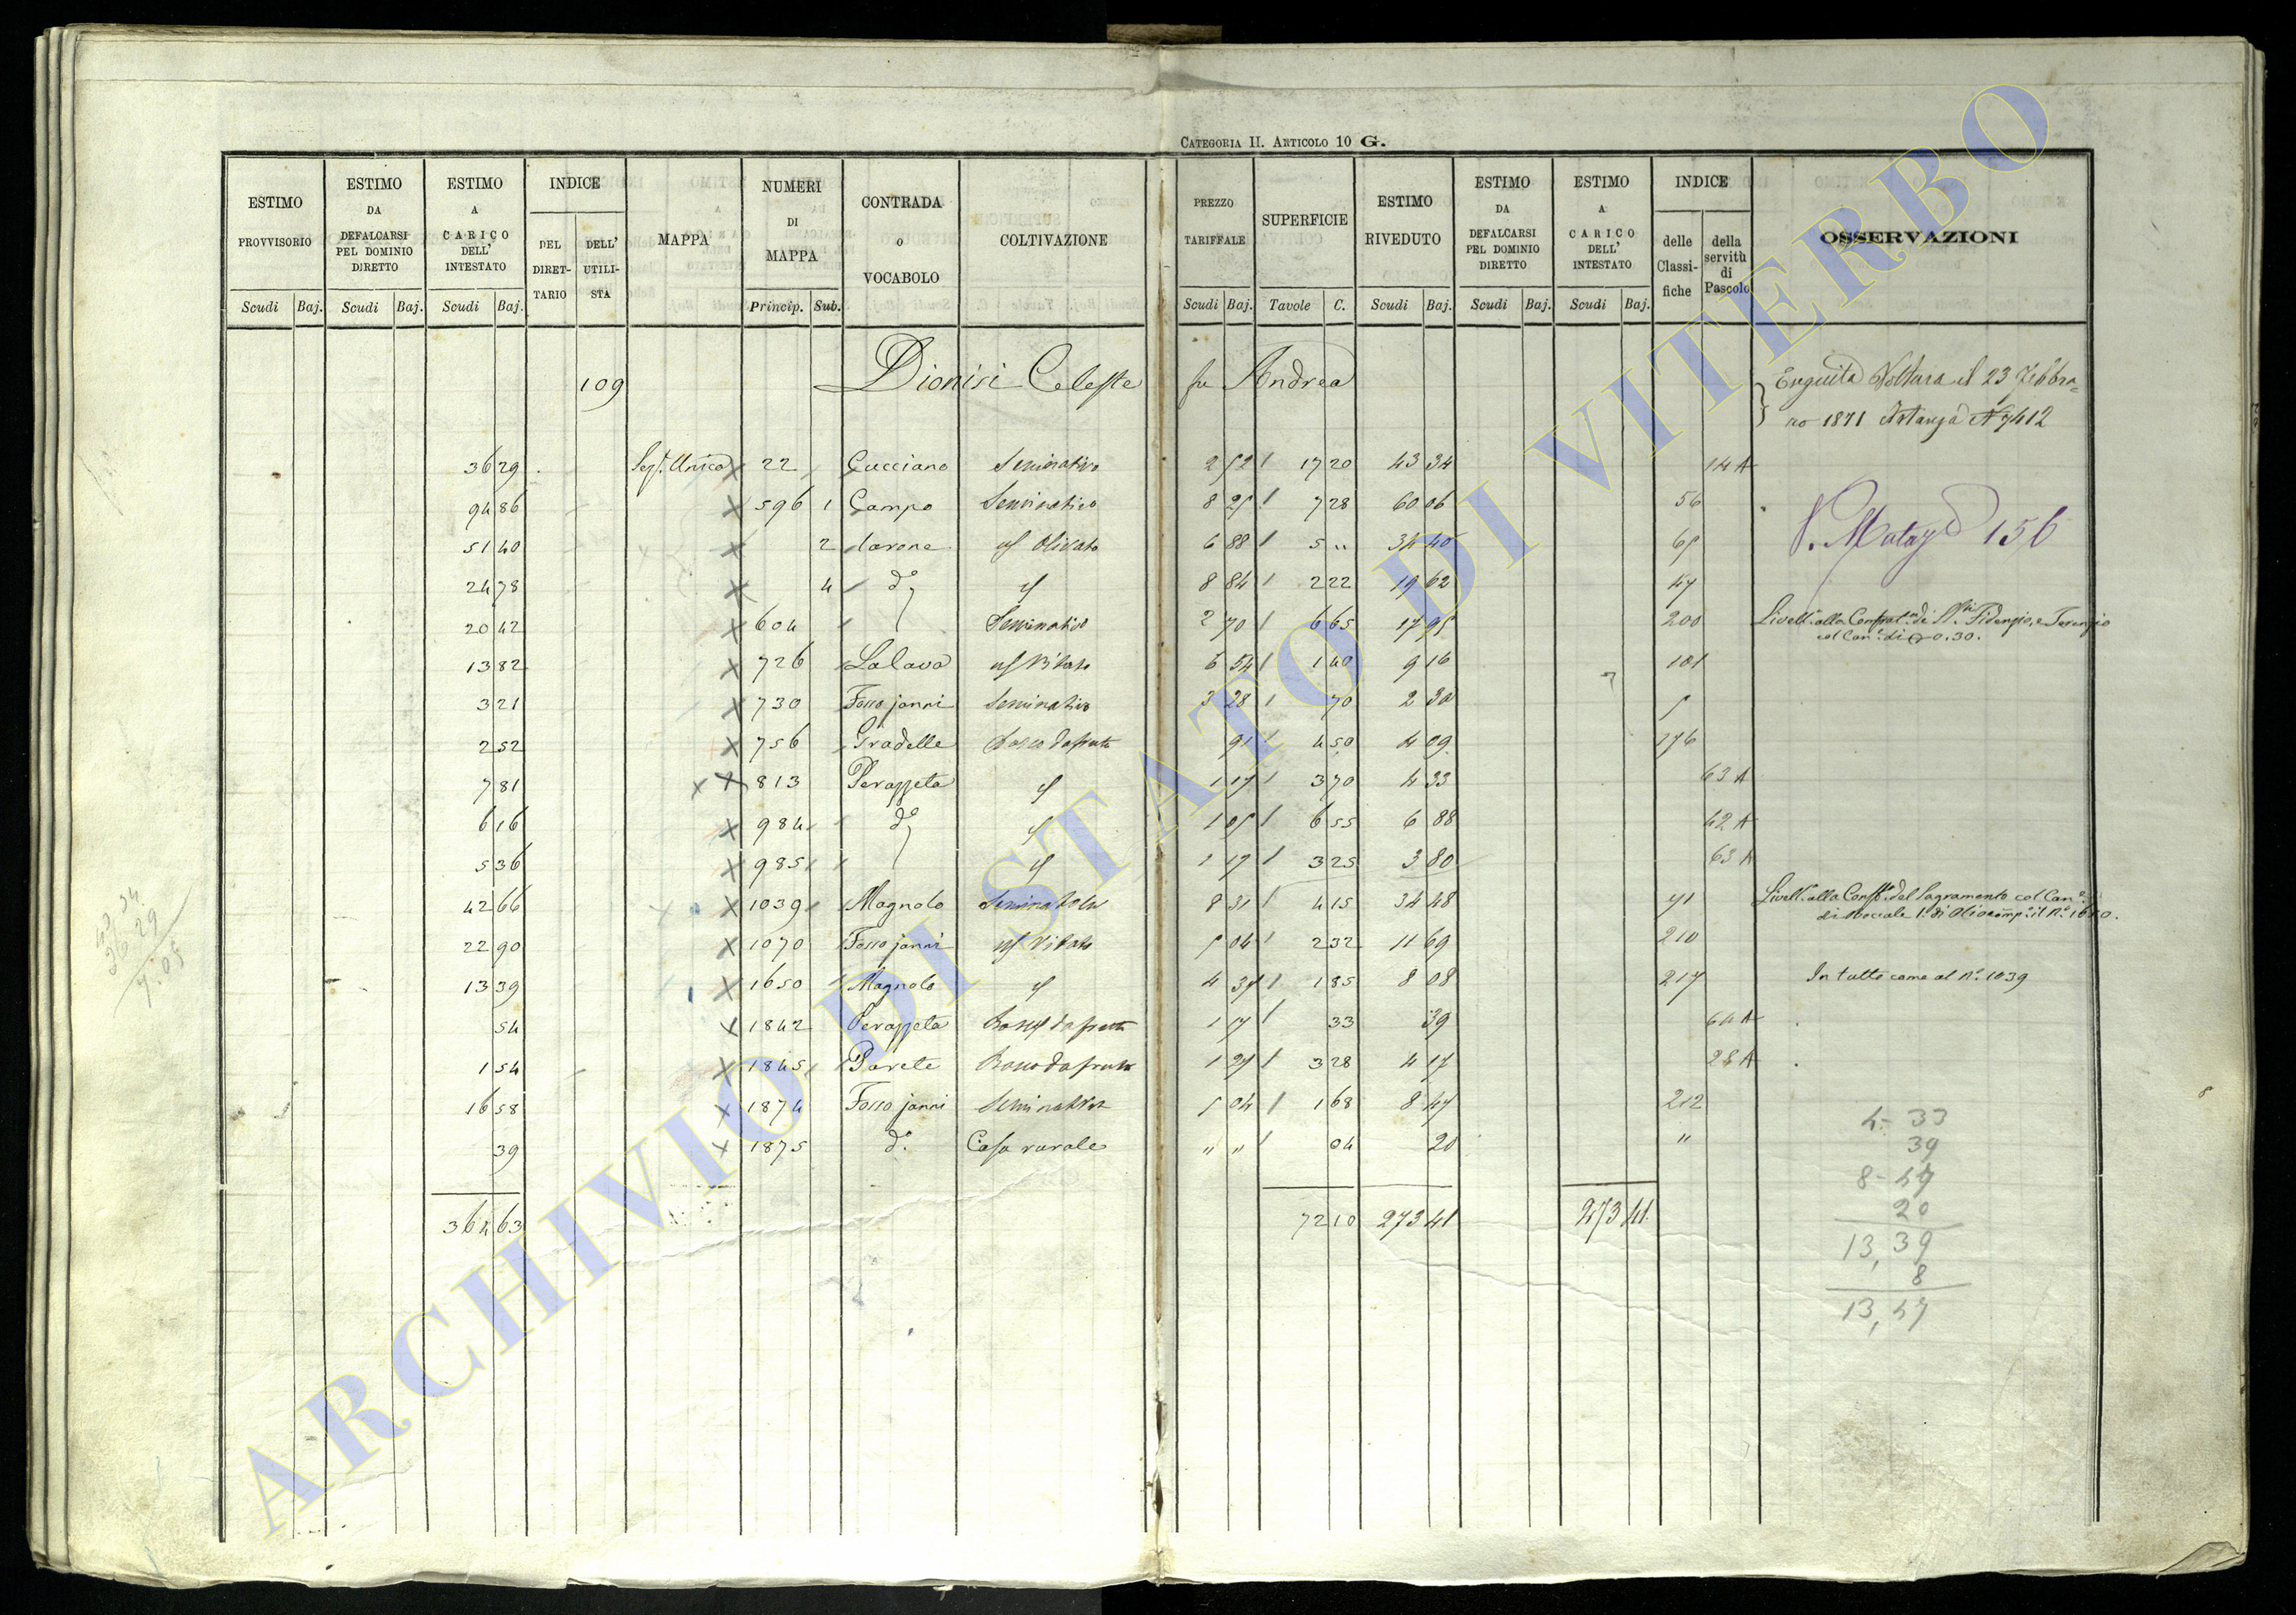 CATEGORIA II. ARTICOLO 10 G.
ESTIMO PROVVISORIO Scudi Baj. ESTIMO DA DEFALCARSI PEL DOMINIO DIRETTO Scudi Baj. ESTIMO A CARICO DELL' INTESTATO Scudi Baj. INDICE DEL DIRETTARIO DELL' UTILISTA MAPPA NUMERI DI MAPPA Princip. Sub. CONTRADA o VOCABOLO COLTIVAZIONE PREZZO TARIFFALE Scudi Baj. SUPERFICIE Tavole C. ESTIMO RIVEDUTO Scudi Baj. ESTIMO DA DEFALCARSI PEL DOMINIO DIRETTO Scudi Baj. ESTIMO A CARICO DELL' INTESTATO Scudi Baj. INDICE delle Classifiche della servitù di Pascolo OSSERVAZIONI
109 Dionisi Celeste fu Andrea
Eseguita Voltura il 23 Febbra=
ro 1871 Istanza N 7412
36 29 Sez. Unica 22 Cucciano Seminativo 2 52 17 20 43 34 14 A
94 86 596 1 Campo Seminativo 8 25 7 28 60 06 56
51 40 2 lavone Olivato 6 88 5 " 34 40 65
24 78 4 d° 8 84 2 22 19 62 47
20 42 604 Seminativo 2 70 6 65 17 95 200 Livell. alla Comp. di SS. Fidenzio, e Terenzio
col Can. di 0.30.
13 82 726 Lalava Vitato 6 54 1 40 9 16 101
3 21 730 Fosso janni Seminativo 3 28 70 2 30 5
2 52 756 Pradelle Bosco da frutto 91 4 50 4 09 176
7 81 813 Perazzeta 1 17 3 70 4 33 63 A
6 16 984 d° 1 05 6 55 6 88 42 A
5 36 985 1 17 3 25 3 80 63 A
42 66 1039 Magnolo 8 31 4 15 34 48 71 Livell. alla Conf. del Sagramento col Can.
di Boccale 1. di Olio comp. il N° 1650.
22 90 1070 Fosso janni Vitato 5 04 2 32 11 69 210
13 39 1650 Magnolo 4 37 1 85 8 08 217 In tutto come al N° 1039
54 1842 Perazzeta Bosco da frutto 1 17 33 39 64 A
1 54 1845 Parete Bosco da frutto 1 27 3 28 4 17 28 A
16 58 1874 Fosso janni Seminativo 5 04 1 68 8 47 212
39 1875 d° Casa rurale " " 04 20 "
364 63 72 10 273 41 273 41
156
4- 33
39
8- 47
20
13, 39
8
13, 47
ARCHIVIO DI STATO DI VITERBO